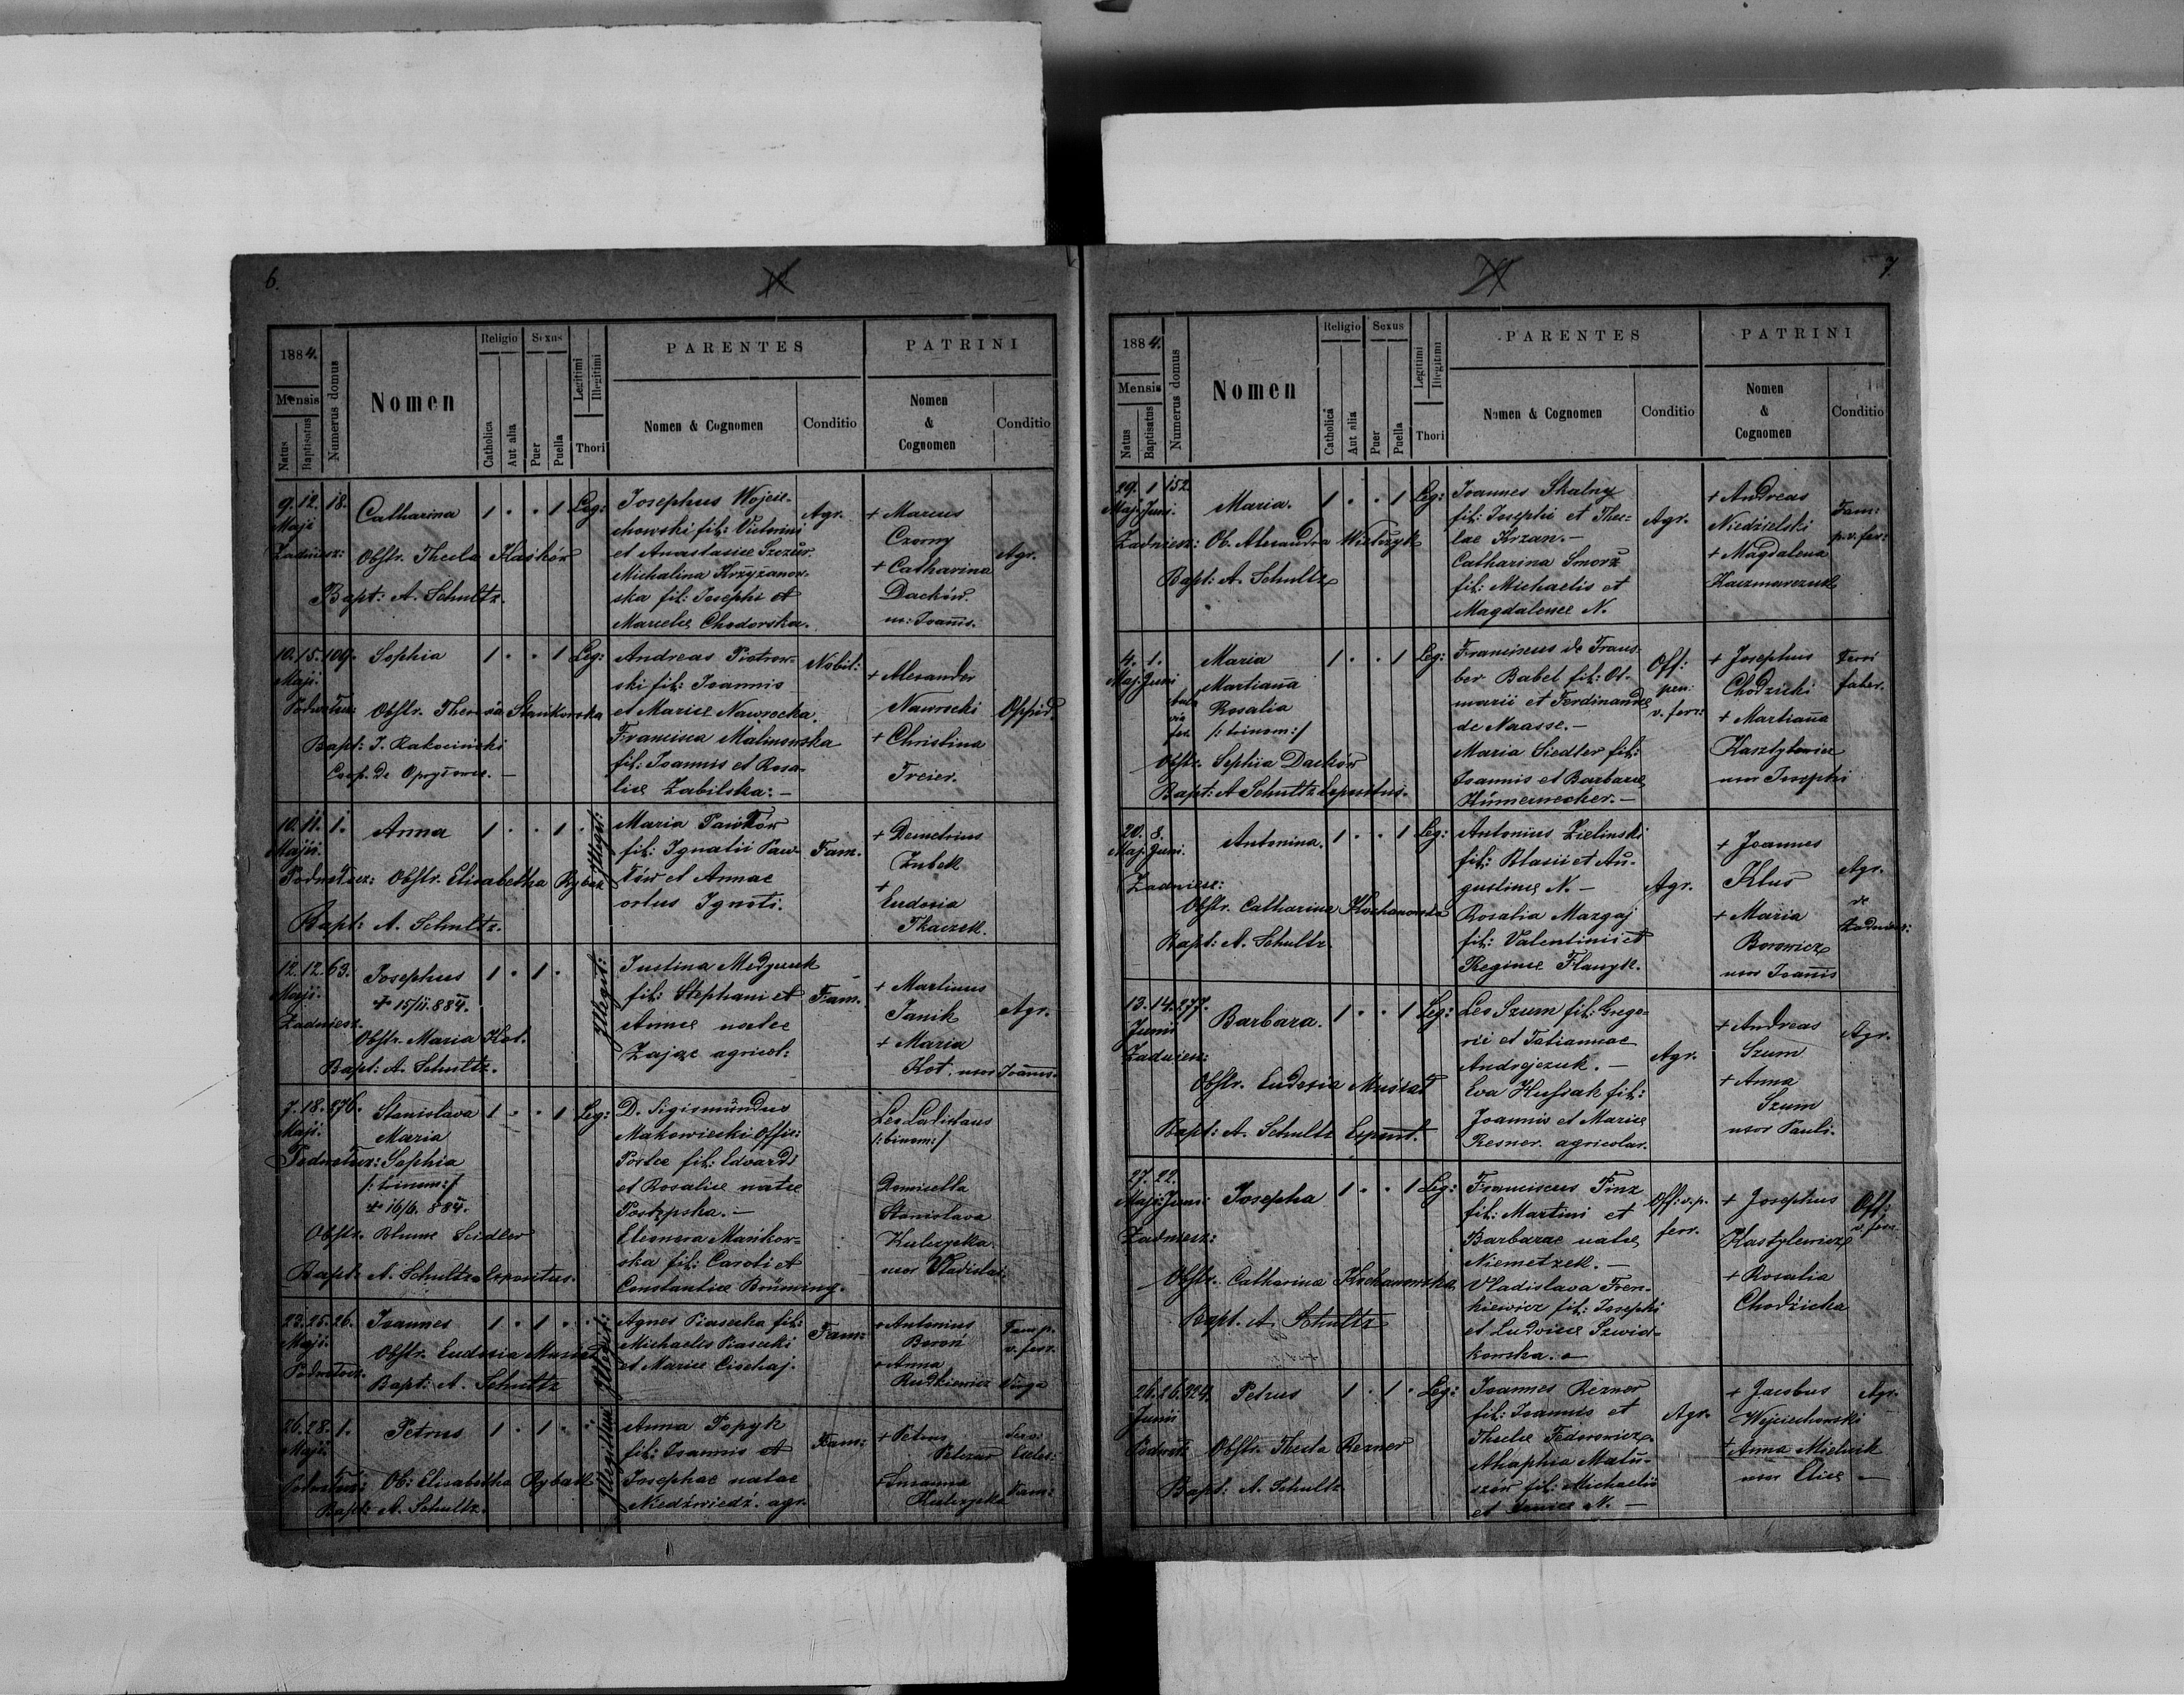 6.
1884.
Mensis
Natus
Baptisatus
Numerus domus
Nomen
Religio
Catholica
Aut alia
Sexus
Puer
Puella
Legitimi
Illegitimi
Thori
PARENTES
Nomen & Cognomen
Conditio
PATRINI
Nomen
&
Cognomen
Conditio
9. 12. 18. Catharina 1 . . 1 Leg:
Maji
Zadniesz:
Obstr. Thecla Haskór
Bapt: A. Schultz.
Josephus Wojcie-
chowski fil: Victorini
et Anastasiae
Michalina Krzyżanow-
ska fil: Josephi et
Marcelae Chodorska.
Agr.
+ Marcus
Czorny
+ Catharina
Daćków.
ux: Joannis.
Agr.
10. 15. 109. Sophia 1 . . 1 Leg:
Maji.
Obstr. Theresia Stankowska
Bapt: J. Rakociński
Coop. de
Andreas Piotrow-
ski fil: Joannis
et Mariae Nawrocka.
Francisca Malinowska
fil: Joannis et Rosa-
liae Zabilska: —
Nobil:
+ Alexander
Nawrocki
+ Christina
Freier.
Oppid.
10. 11. 1. Anna 1 . . 1 . Illegit:
Maji.
Obstr. Elisabetha Rybak
Bapt: A. Schultz.
Maria Pawłów
fil: Ignatii Paw-
łów et Annae
ortus Ignoti.
Fam.
+ Demetrius
Zubek
+
Eudosia
Tkaczek.
12. 12. 63. Josephus 1 . 1 . Illegit:
Maji.
Zadniesz.
+ 15/II. 884.
Obstr. Maria Kot.
Bapt: A. Schultz.
Justina
fil: Stephani et
Annae natae
Zając agricol:
Fam.
+ Martinus
Janik
+ Maria
Kot. uxor Joannis.
Agr.
7. 18. 276. Stanislava 1 . . 1 Leg:
Maji.
Maria
Sophia
/:trinom:/
+ 16/6. 884.
Obstr. Blume Seidler
Bapt: A. Schultz Expositus.
D. Sigismundus
Makowiecki Offic:
Portae fil: Edvardi
et Rosaliae natae
Postępska. —
Eleonora Mańkow-
ska fil: Caroli et
Constantiae Brüming.
Leo Ladislaus
/:binom:/
Domicella
Stanislava
Kulczycka
uxor Vladislai
23. 25. 26. Joannes 1 . 1 . . Illegit:
Maji.
Obstr. Eudosia
Bapt: A. Schultz
Agnes Piasecka fil:
Michaelis Piasecki
et Mariae
Fam:
+ Antonius
Boroń
+ Anna
Rudkiewicz
Fam p.
v. ferr.
Virgo
26. 28. 1. Petrus 1 . 1 . : Illegitim
Maji
Ob: Elisabetha Rybak
Bapt: A. Schultz.
Anna Popyk
fil: Joannis et
Josephae natae
Niedźwiedź. agr.
Fam:
+ Petrus
+ Susanna
Kulczycka
Fam:
7.
1884.
Mensis
Natus
Baptisatus
Numerus domus
Nomen
Religio
Catholica
Aut alia
Sexus
Puer
Puella
Legitimi
Illegitimi
Thori
PARENTES
Nomen & Cognomen
Conditio
PATRINI
Nomen
&
Cognomen
Conditio
29. 1 152. Maria. 1 . . 1 Leg:
Maj. Juni.
Zadniesz: Ob. Alexandra
Bapt: A. Schultz
Joannes Skalny
fil: Josephi et Thec-
lae Krzan. —
Catharina Smorż
fil: Michaelis et
Magdalenae N.
Agr.
+ Andreas
Niedzielski
+ Magdalena
Kaczmarczuk
Fam:
p. v. fer:
4. 1. Maria 1 . . 1 Leg:
Maj. Juni
Martianna
Rosalia
/:trinom:/
Obstr. Sophia Daćków
Bapt: A Schultz Expositus.
Franciscus de Traus-
ber Babel fil: Ot-
marii et Ferdinandae
de Naasse. —
Maria Siedler fil:
Joannis et Barbarae
Off:
pen:
v. ferr:
+ Josephus
Chodzicki
+ Martianna
Kasztylewicz
uxor Josephi
Ferri
faber.
20. 8. Antonina. 1 . . 1 Leg:
Maj. Juni.
Zadniesz:
Obstr. Catharina Kochanowska
Bapt: A. Schultz
Antonius Zielinski
fil: Blasii et Au-
gustinae N. —
Rosalia Mazgaj
fil: Valentini et
Reginae
Agr.
+ Joannes
Klus
+ Maria
Borowicz
uxor Joannis
Agr.
de
Zadniesz:
13. 14. 277. Barbara. 1 . . 1 Leg:
Junii
Zadniesz:
Obstr. Eudosia
Bapt: A. Schultz Exposit.
Leo Szum fil: Grego-
rii et Tatiannae
Andrejczuk. —
Eva Hussak fil:
Joannis et Mariae
Resner. agricolar.
Agr.
+ Andreas
Szum
+ Anna
Szum
uxor Pauli.
Agr.
27. 22. Josepha 1 . . 1 Leg:
Maji Juni:
Zadniesz:
Obstr. Catharina Kochanowska
Bapt. A. Schultz
Franciscus Finz
fil: Martini et
Barbarae natae
Niemetzek. —
Vladislava Fren-
kiewicz fil: Josephi
et Ludovicae Szwid-
kowska.
Off: v. p.
ferr.
+ Josephus
Kastylewicz
+ Rosalia
Chodzicka
Off:
v. ferr.
26. 26. 324. Petrus 1 . 1 . Leg:
Junii
Obstr. Thecla Rezner
Bapt: A. Schultz
Joannes Rezner
fil: Joannis et
Theclae Fedorowicz.
Ahaphia Matu-
szów fil: Michaelis
et N. —
Agr.
+ Jacobus
Wojciechowski
+ Anna Mielnik
uxor Eliae —
Agr.